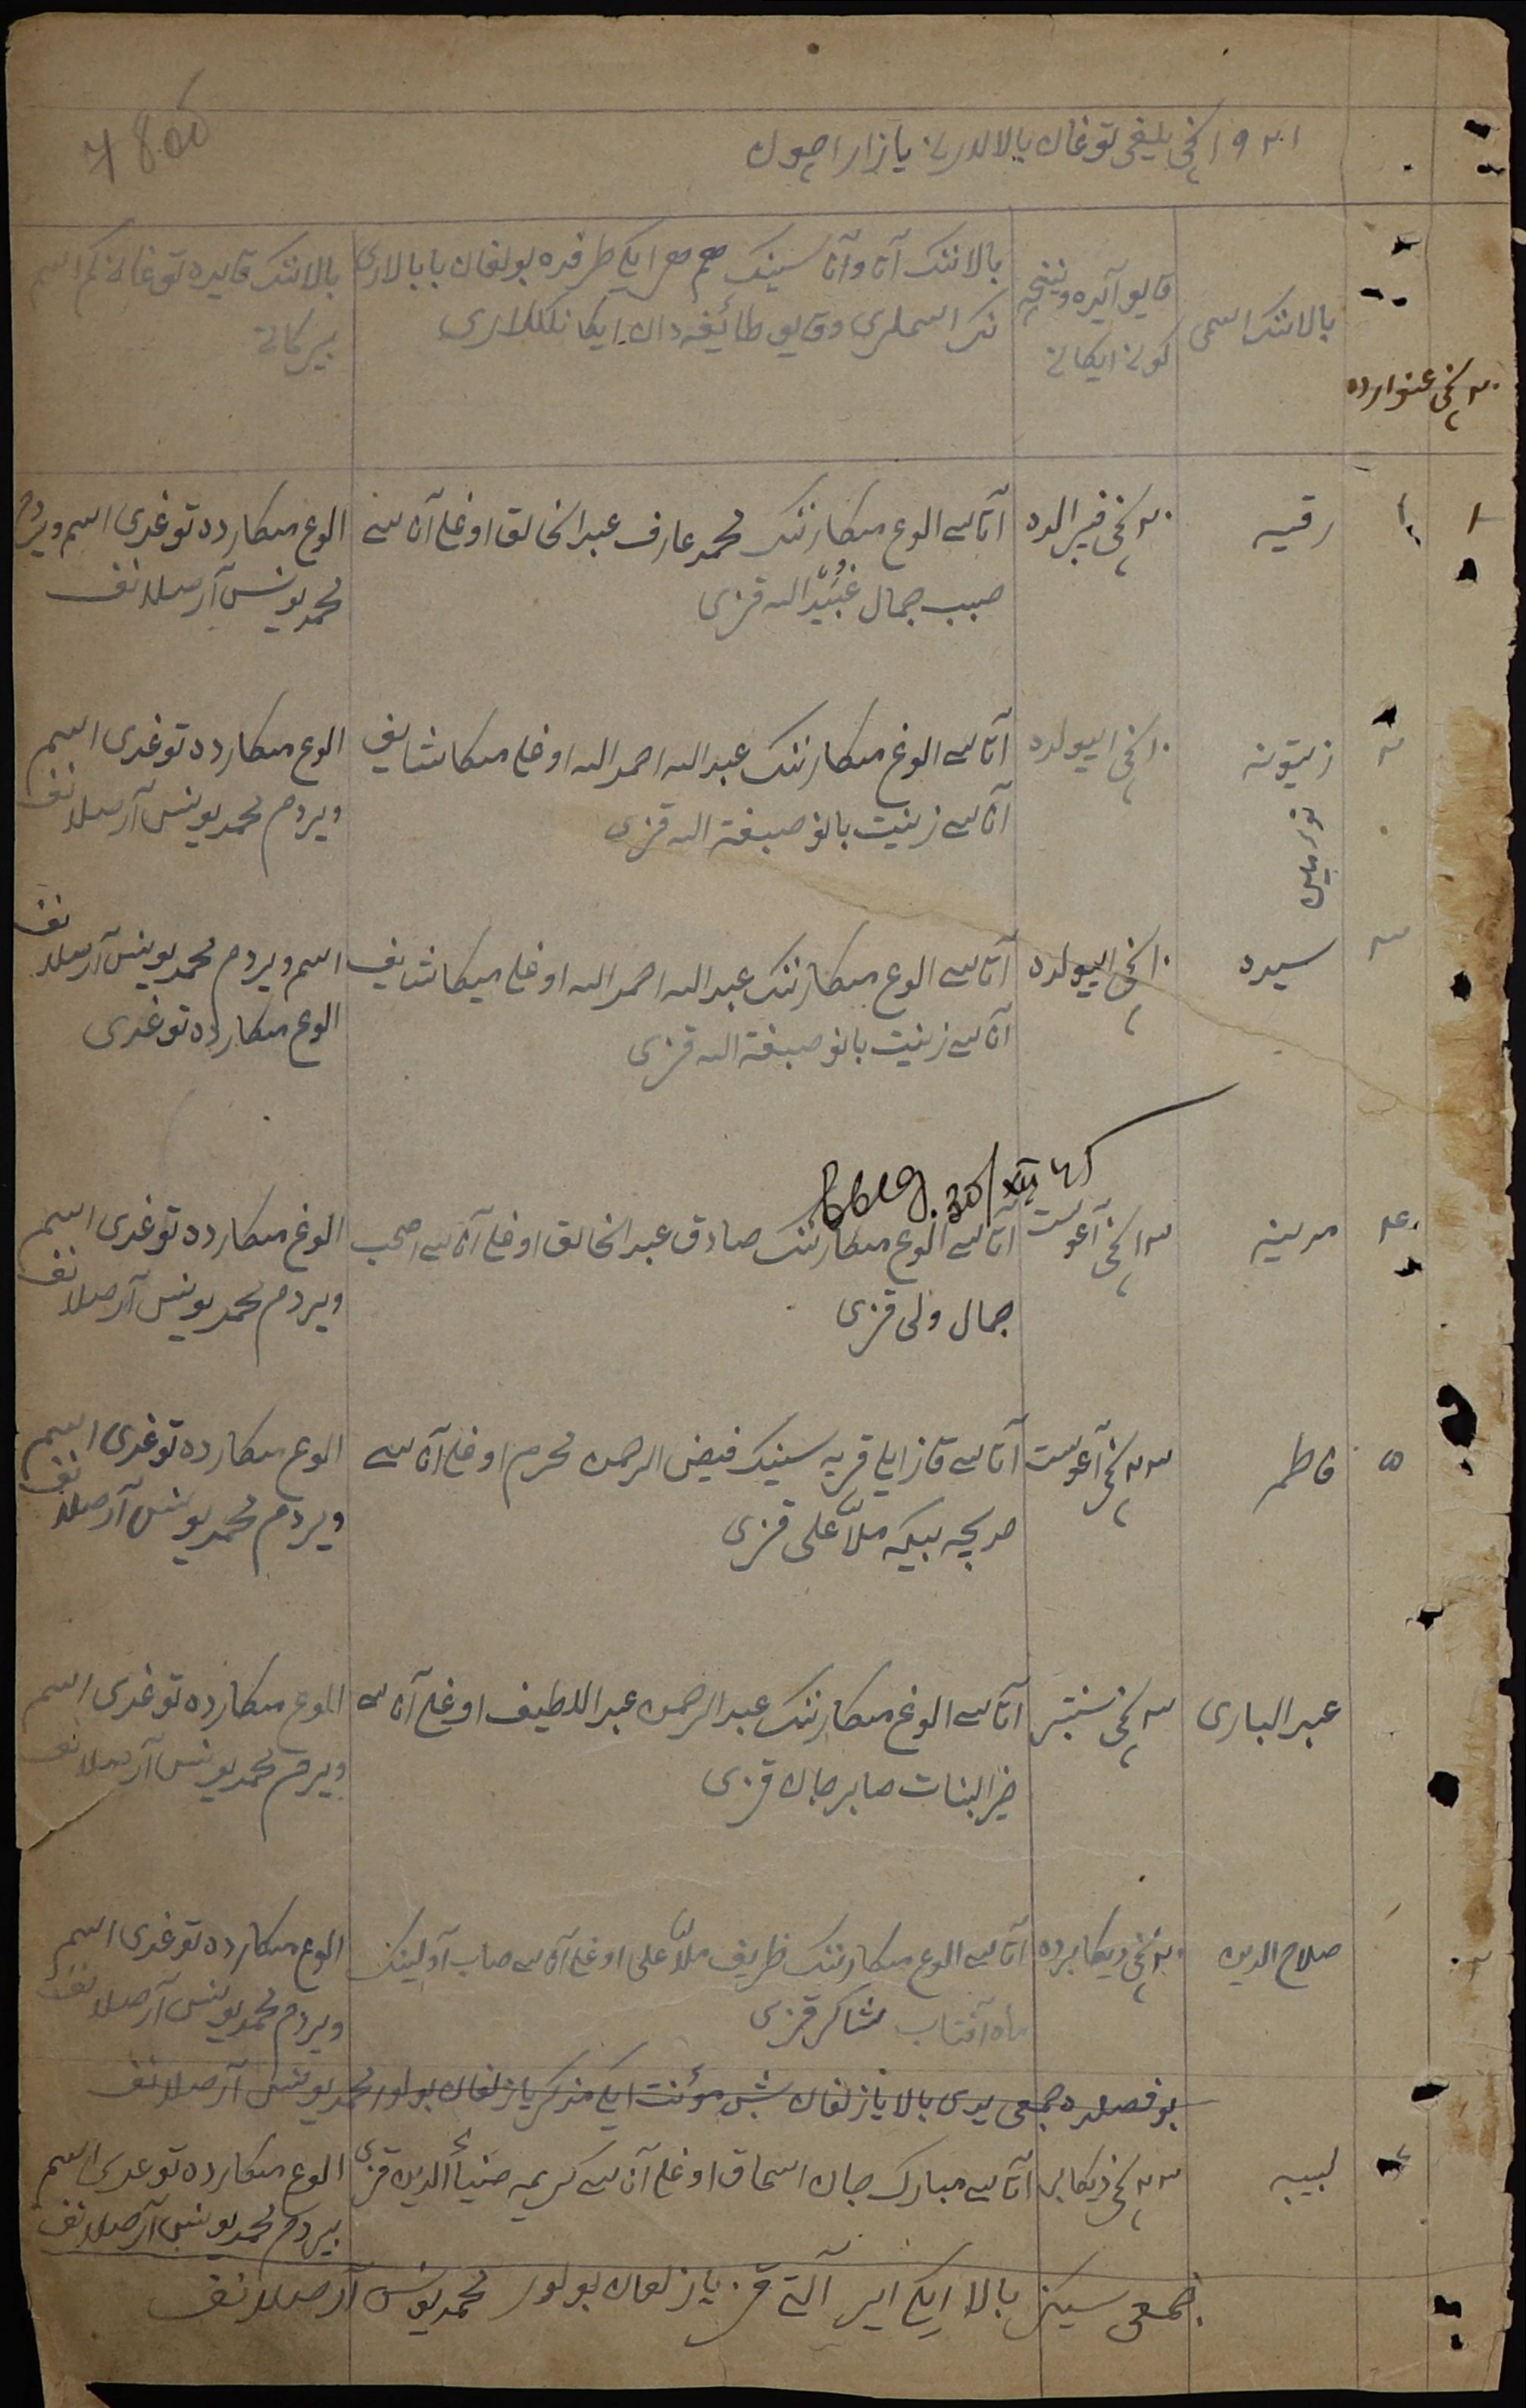 780б
١٩٢١ نچی ییلغی توغان بالالرنی یازار اچون
بالاننک اسمی
قایو آیده ونیچنچی
کونی ایکانی
بالاننک آتا وآناسینک هم هر ایکی طرفده بولغان بابالاری
ننک اسملری وقایو طائفه دان ایکانلکلاری
بالاننک قایده توغانی کم اسم
بیرکانی
٢٠ نچی عنواردە
١ ١
رقیه
٢٠ نچی فیرالده
آتاسی الوغ مسکارننک محمد عارف عبد الخالق اوغلی آناسی
حبیب جمال عُبَیْدُ الله قزی
الوغ مسکارده توغدی اسم ویردم
محمد یونس آرسلانف
٢
زیتونه
١٠ نچی اییولده
آتاسی الوغ مسکارننک عبد الله احمد الله اوغلی مسکاشایف
آناسی زینت بانو صبغة الله قزی
الوغ مسکارده توغدی اسم
ویردم محمد یونس آرسلانف
٣
سیده
١٠ نچی اییولده
آتاسی الوغ مسکارننک عبد الله احمد الله اوغلی میکاشایف
آناسی زینت بانو صبغة الله قزی
اسم ویردم محمد یونس آرسلانف
الوغ مسکارده توغدی
30/XII 45
٤
مدینه
١٣ نچی آغوست
آتاسی الوغ مسکارننک صادق عبد الخالق اوغلی آناسی اصحب
جمال ولی قزی
الوغ مسکارده توغدی اسم
ویردم محمد یونس آرصلانف
٥
فاطمه
٢٣ نچی آغوست
آتاسی قازایلی قریه سینک فیض الرحمن محرم اوغلی آناسی
خدیجه بیکه ملاّ علی قزی
الوغ مسکارده توغدی اسم
ویردم محمد یونس آرصلانف
عبد الباری
٣ نچی سنتبر
آتاسی الوغ مسکارننک عبد الرحمن عبد اللطیف اوغلی آناسی
خیر البنات صابرجان قزی
الوغ مسکارده توغدی اسم
ویردم محمد یونس آرسلانف
٢
صلاح الدین
٢٠ نچی دیکابرده
آتاسی الوغ مسکارننک ظریف ملاّ علی اوغلی آناسی صاب آولینک
ماه آفتاب شاکر قزی
الوغ مسکارده توغدی اسم
ویردم محمد یونس آرصلانف
بو فصلده جمعی یدی بالا یازلغان بش مؤنث ایکی مذکر یازلغان بولور محمد یونس آرصلانف
٦
لبیبه
٢٣ نچی دیکابر
آتاسی مبارک جان اسحاق اوغلی آناسی کریمه ضیأ الدین قزی
الوغ مسکارده توغدی اسم
بیردم محمد یونس آرصلانف
جمعی سیکز بالا ایکی ایر آلتی قز یازلغان بولور محمد یونس آرصلانف